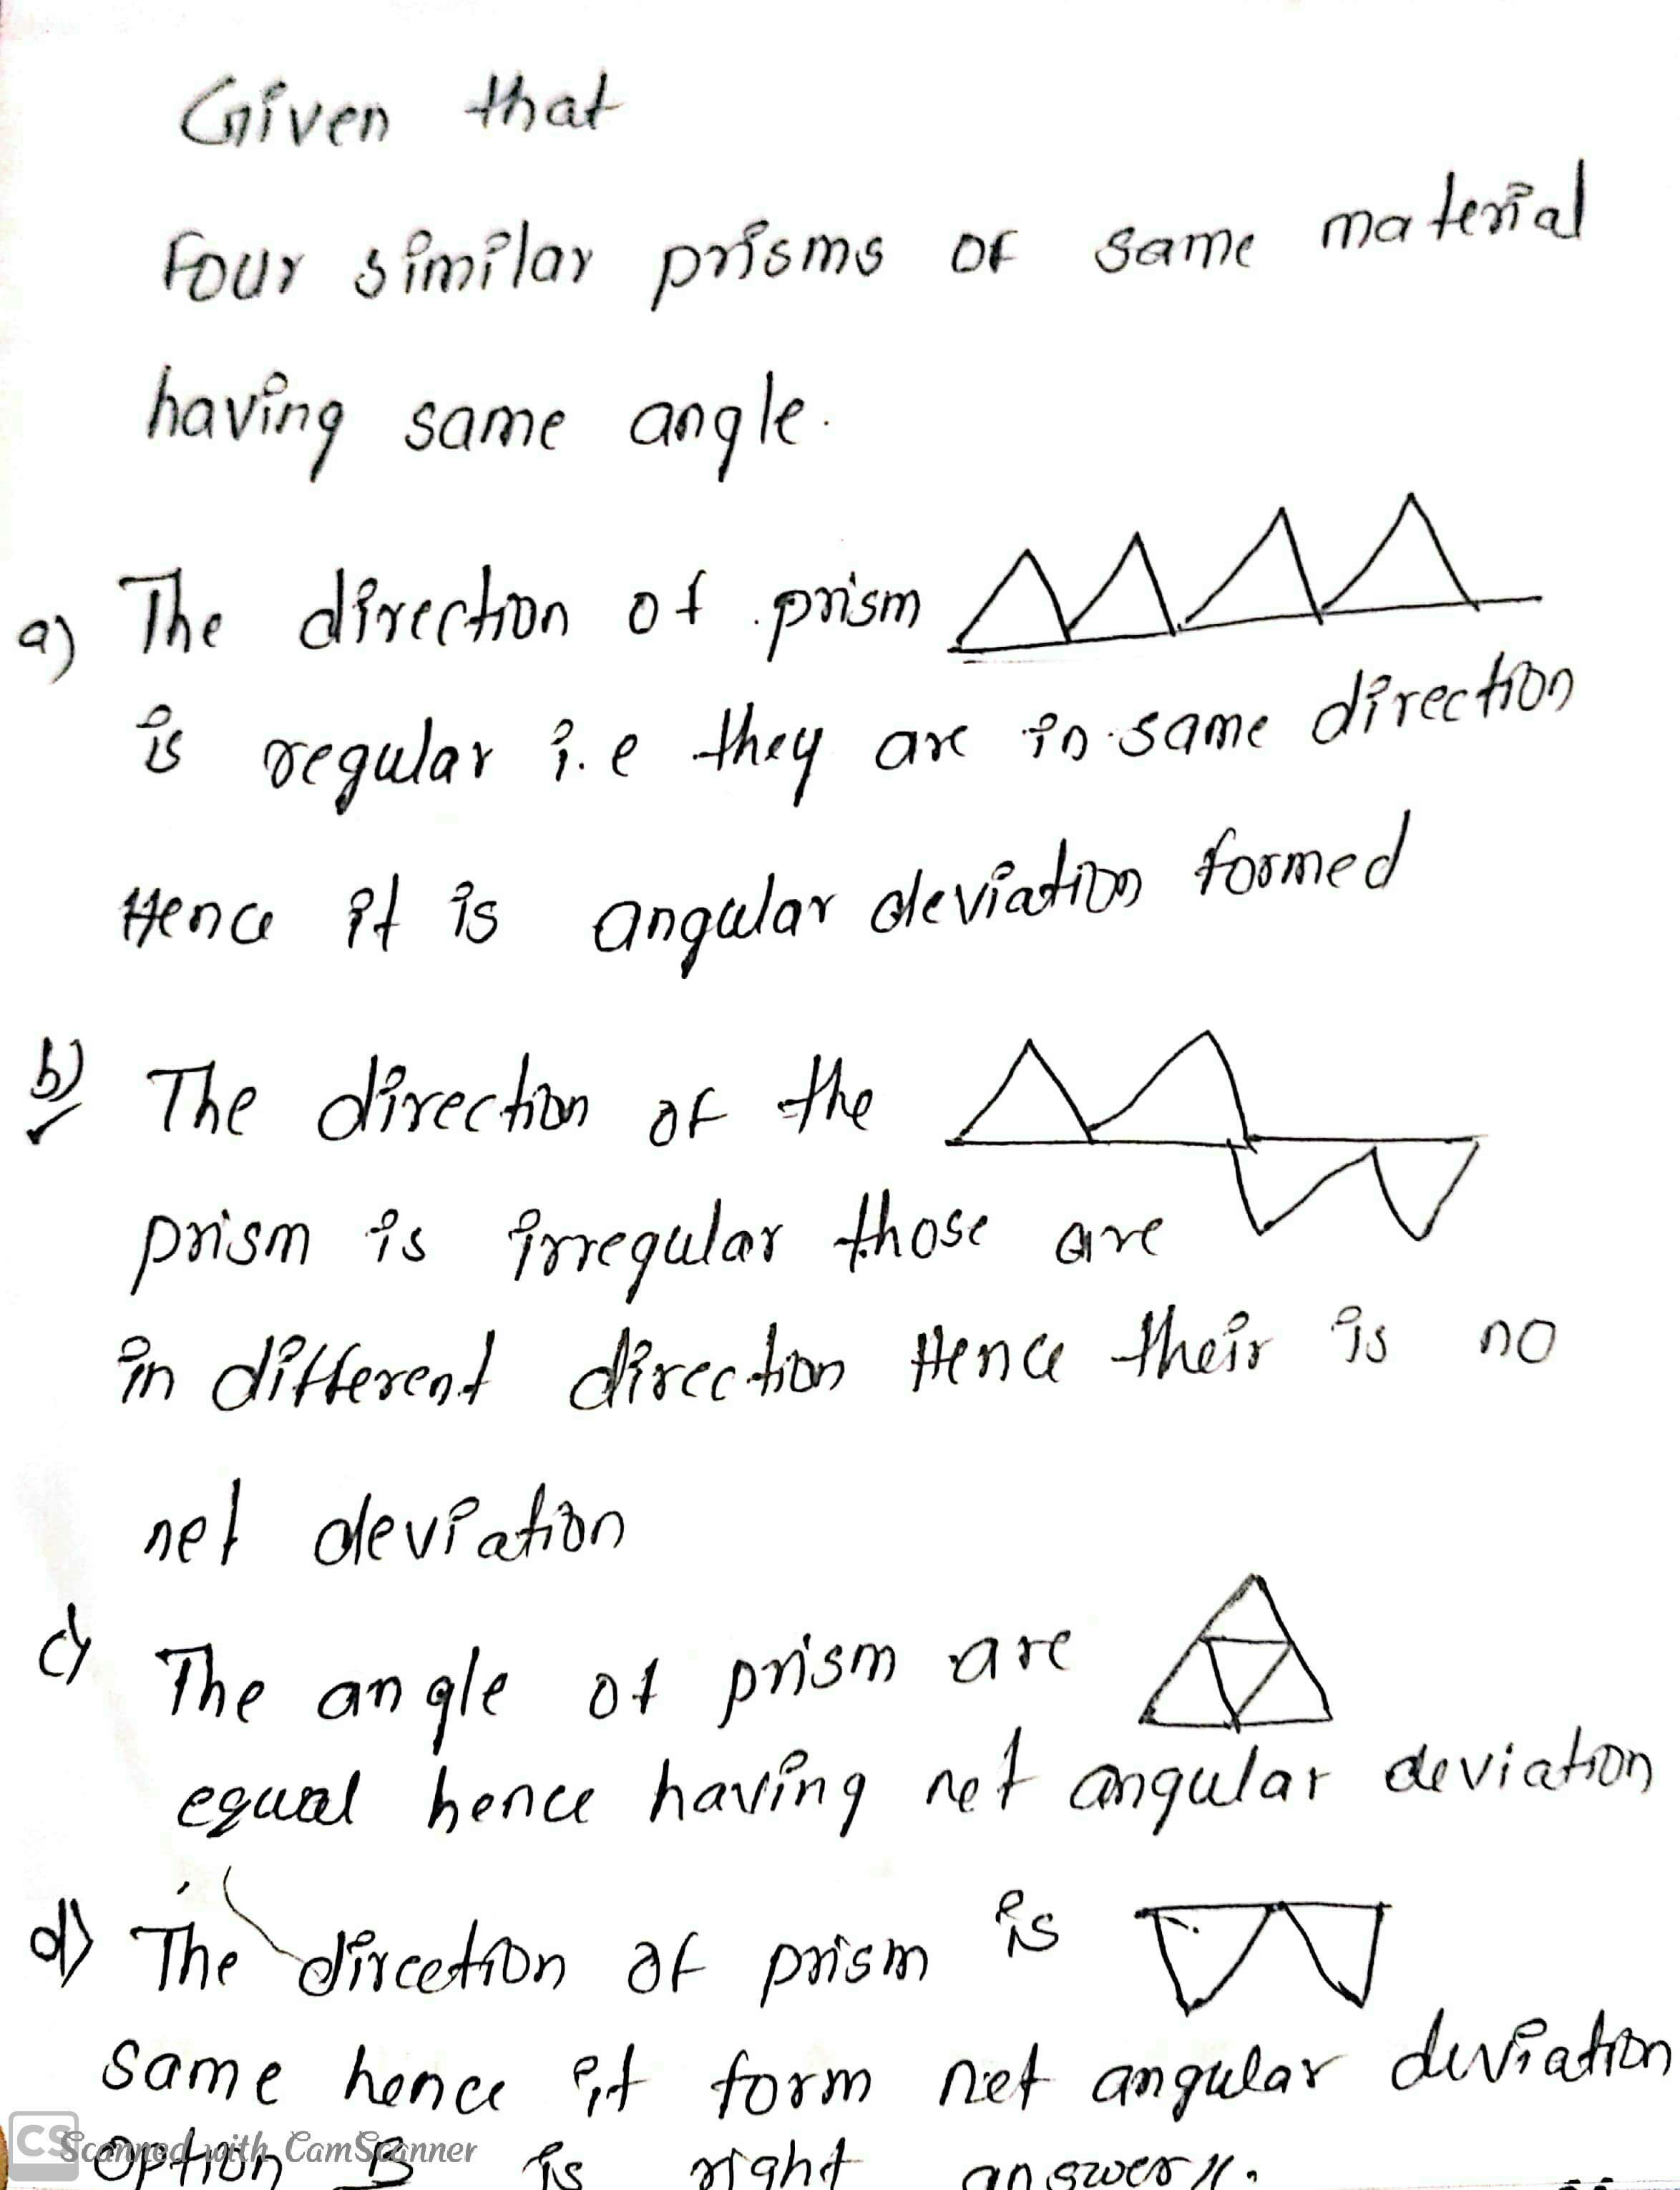 Given that
Four similar prisms of same material
having same angle.
a) The direction of prism
is regular i.e they are in same direction
Hence it is angular deviation formed
b) The direction of the
prism is irregular those are
in different direction Hence their is no
net deviation
c) The angle of prism are
equal hence having net angular deviation
d) The direction of prism is
same hence it form net angular deviation
Option B is right answer//.
CS Scanned with CamScanner